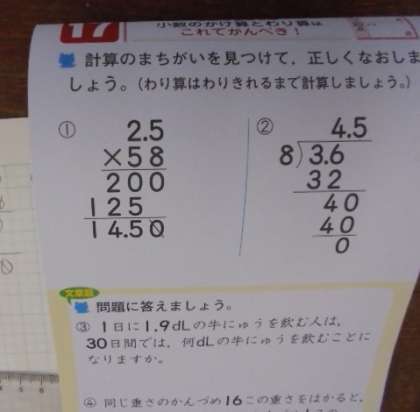 17
小数のかけ算とわり算は
これでかんぺき!
計算のまちがいを見つけて，正しくなおしま
しょう。(わり算はわりきれるまで計算しましょう。)
① 2.5
×58
200
125
14.50
② 4.5
8)3.6
32
40
40
0
文章題
問題に答えましょう。
③ 1日に1.9dLの牛にゅうを飲む人は，
30日間では，何dLの牛にゅうを飲むことに
なりますか。
④ 同じ重さのかんづめ16この重さをはかると，